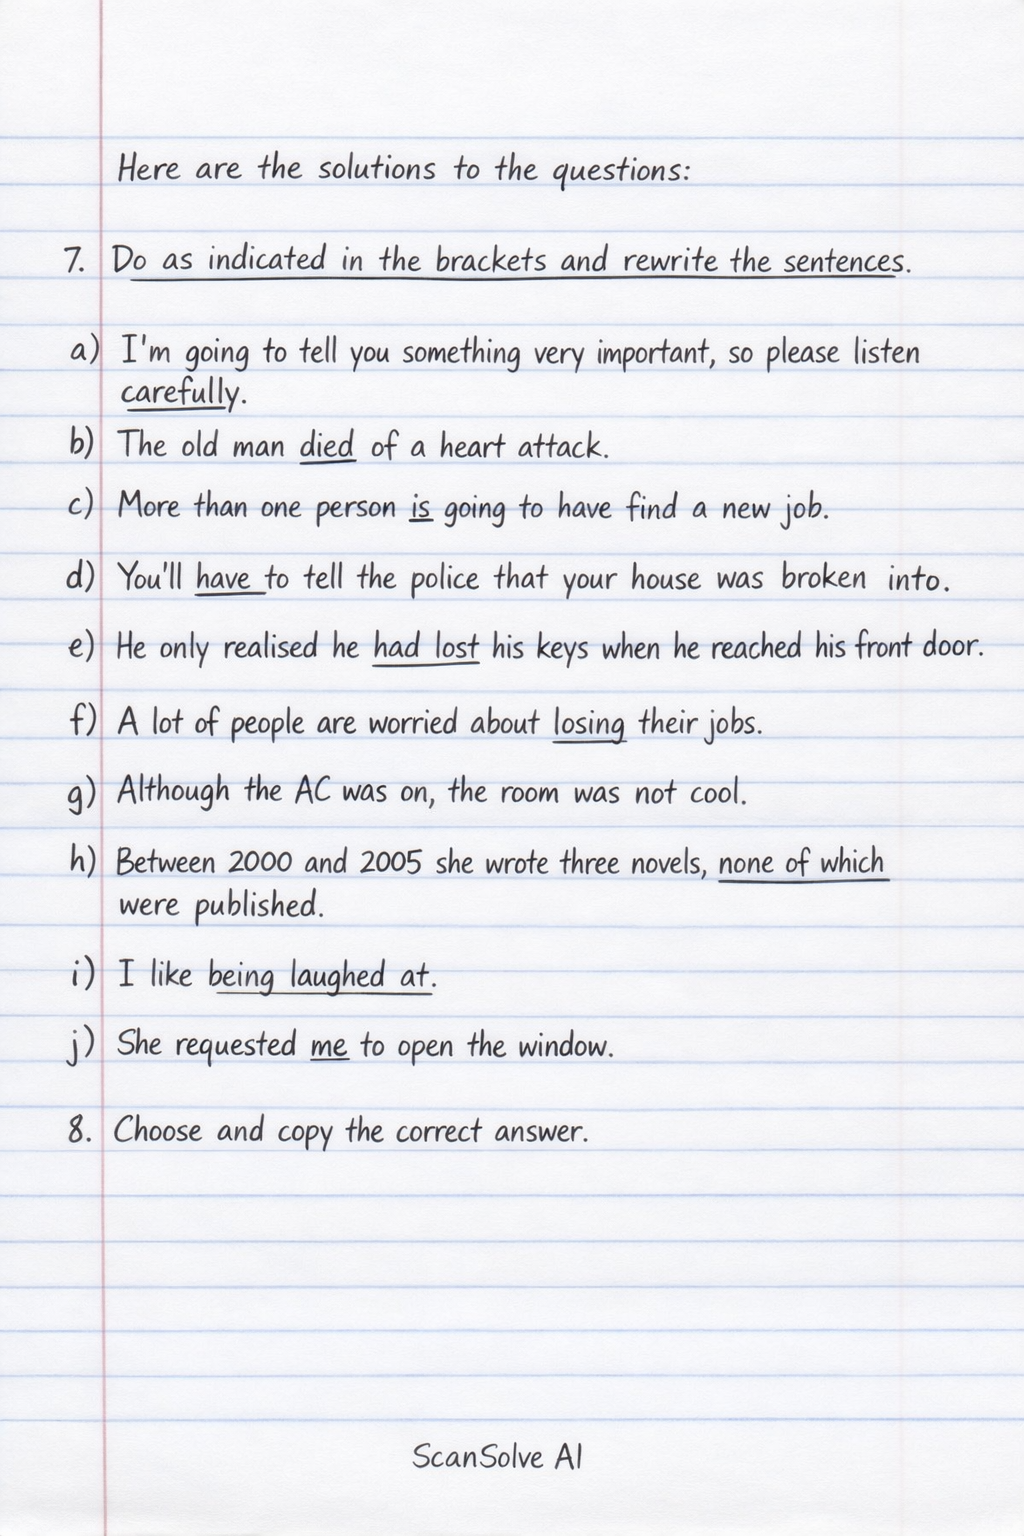 Here are the solutions to the questions:
7. Do as indicated in the brackets and rewrite the sentences.
a) I'm going to tell you something very important, so please listen
carefully.
b) The old man died of a heart attack.
c) More than one person is going to have find a new job.
d) You'll have to tell the police that your house was broken into.
e) He only realised he had lost his keys when he reached his front door.
f) A lot of people are worried about losing their jobs.
g) Although the AC was on, the room was not cool.
h) Between 2000 and 2005 she wrote three novels, none of which
were published.
i) I like being laughed at.
j) She requested me to open the window.
8. Choose and copy the correct answer.
ScanSolve AI